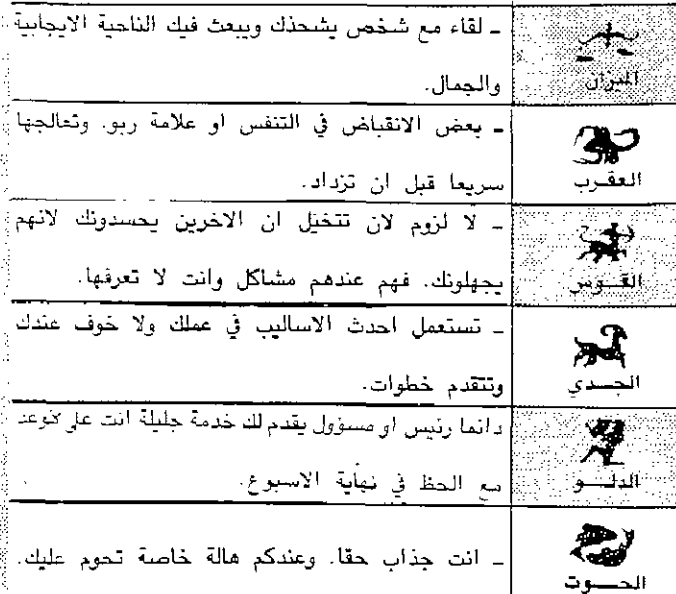 الميزان
ـ لقاء مع شخص يشحذك ويبعث فيك الناحية الايجابية
والجمال.
العقرب
ـ بعض الانقباض في التنفس او علامة ربو. وتعالجها
سريعا قبل ان تزداد.
القوس
ـ لا لزوم لان تتخيل ان الاخرين يحسدونك لانهم
يجهلونك. فهم عندهم مشاكل وانت لا تعرفها.
الجدي
ـ تستعمل احدث الاساليب في عملك ولا خوف عندك
وتتقدم خطوات.
الدلو
دائما رئيس او مسؤول يقدم لك خدمة جليلة انت على موعد
مع الحظ في نهاية الاسبوع.
الحوت
ـ انت جذاب حقا. وعندكم هالة خاصة تحوم عليك.